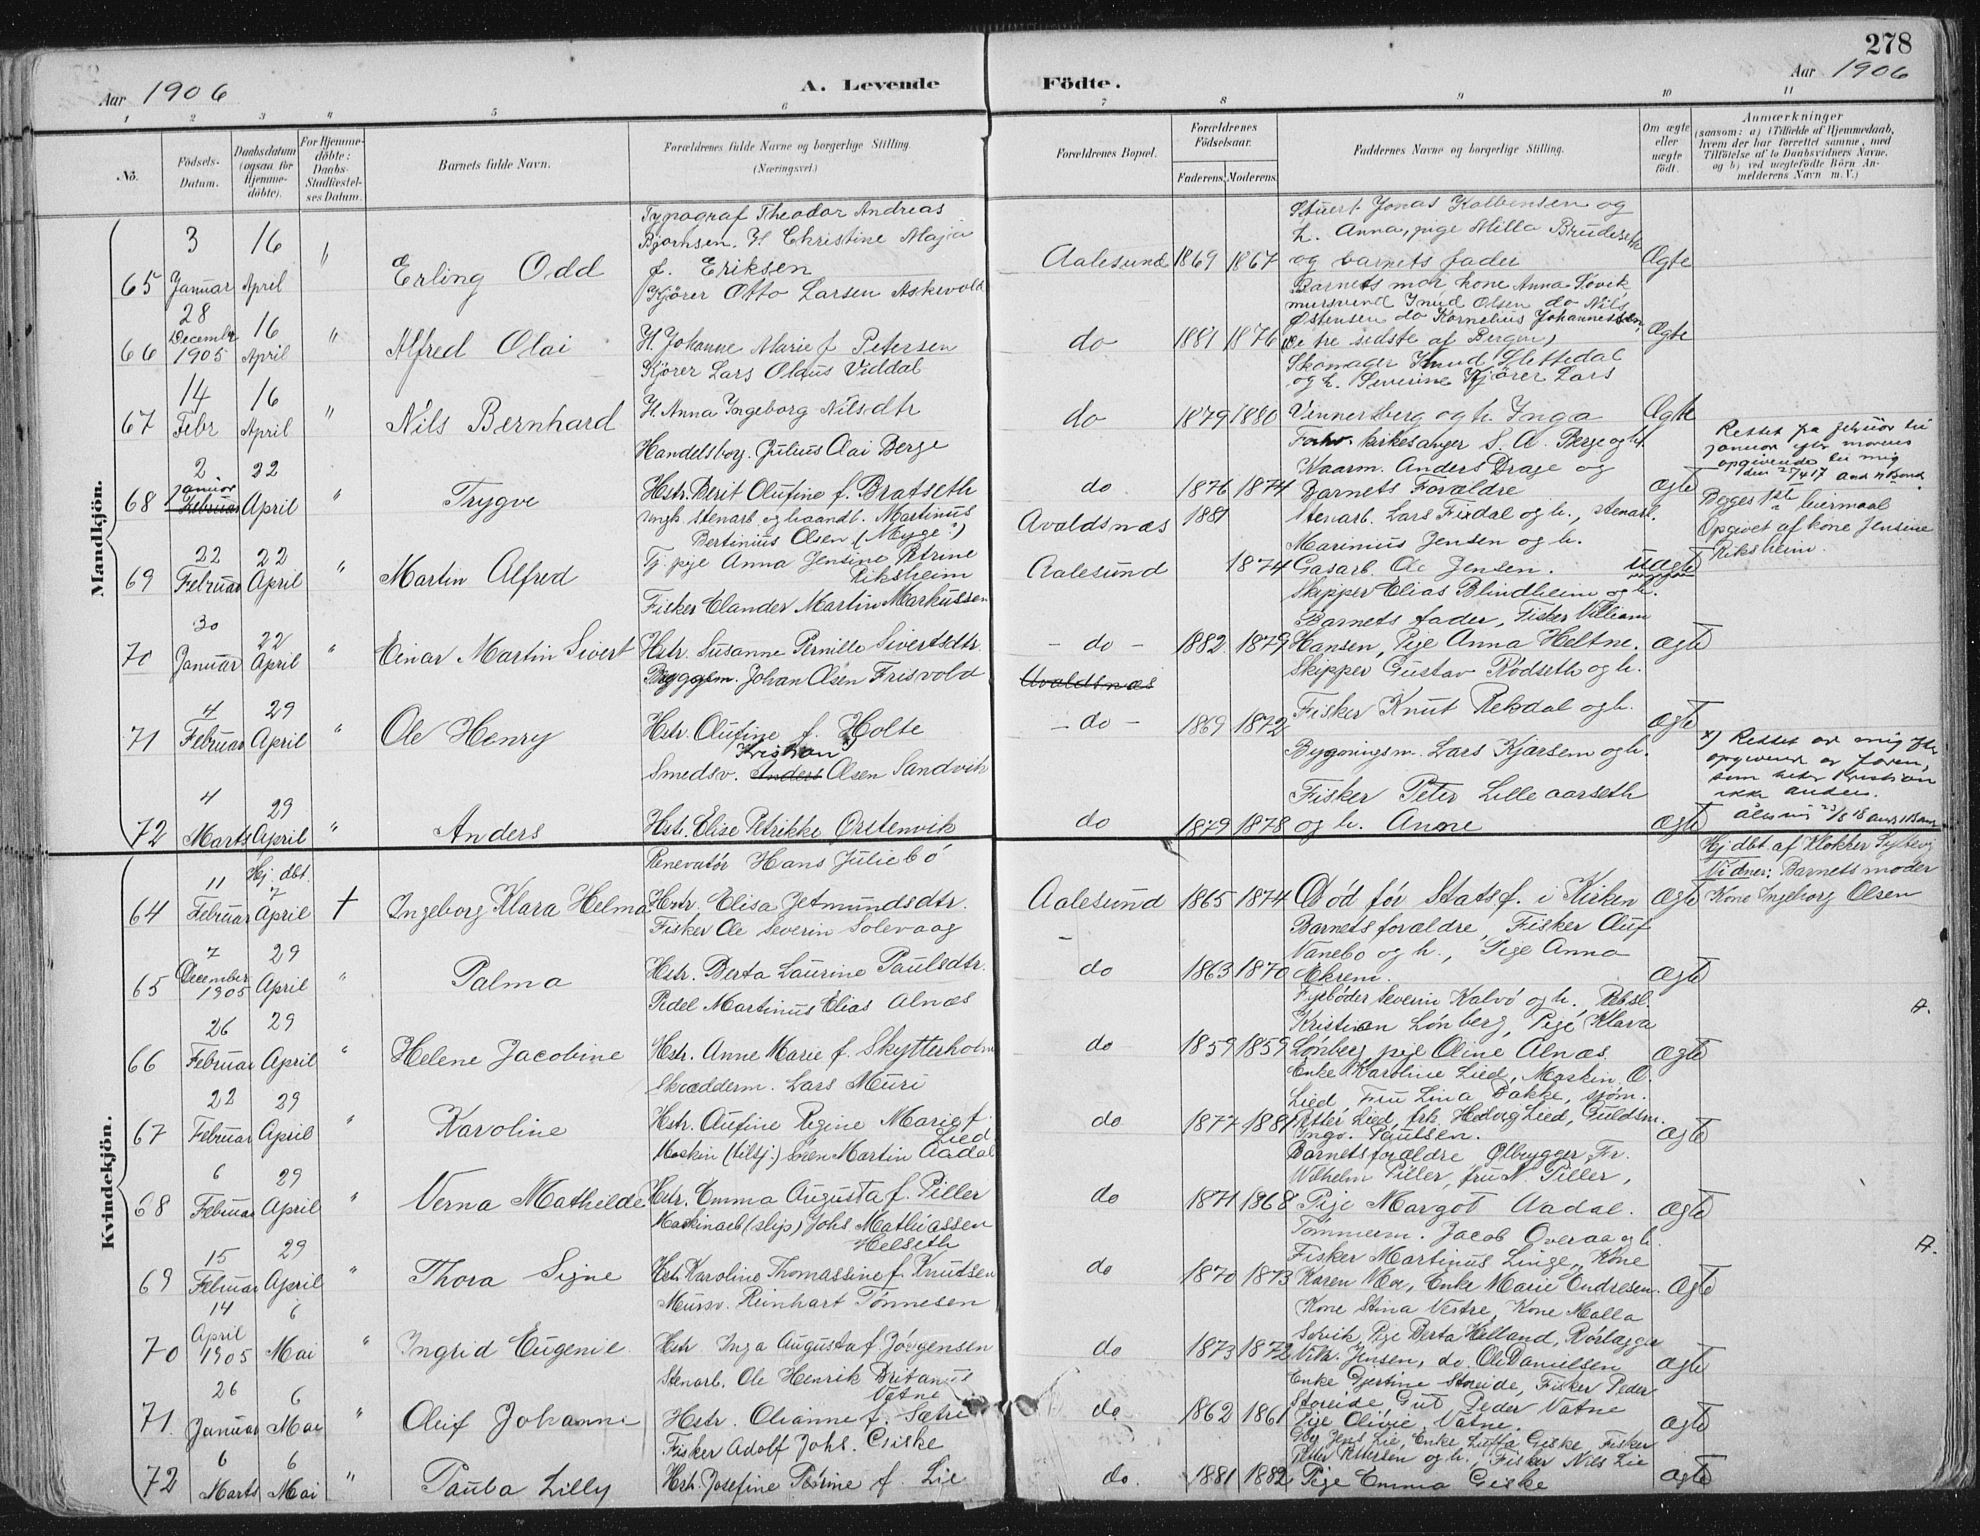 278
Aar 1906
A. Levende Födte.
Aar 1906
1 2 3 4 5 6 7 8 9 10 11
Nö.
Födsels-Datum.
Daabsdatum (ogsaa for Hjemmedöbte).
For Hjemmedöbte: Daabs-Stadfæstelses Datum.
Barnets fulde Navn.
Forældrenes fulde Navne og borgerlige Stilling. (Næringsvei.)
Forældrenes Bopæl.
Forældrenes Födselsaar.
Faderens. Moderens.
Faddernes Navne og borgerlige Stilling.
Om ægte eller uægte födt.
Anmærkninger
(saasom: a) i Tilfælde af Hjemmedaab, hvem der har forrettet samme, med Tilföielse af to Daabsvidners Navne, og b) ved uægtefödte Börn Anmelderens Navn m. V.)
Mandkjön.
65 3 Januar 16 April " Erling Odd
Typograf Theodor Andreas
Bjørnsen. H. Christine Maja
f. Eriksen
Aalesund 1869 1867
Stuert Jonas Kolbensen og
h. Anna, pige Milla
og barnets fader
Ægte
66 28 Decembr 1905 16 April " Alfred Olai
Kjører Otto Larsen Askevold
H. Johanne Marie f. Petersen
do 1881 1876
Barnets mor, kone Anna Løvik
mursvend Knud Olsen do Nils
Østensen do Kornelius Johannessen
(de tre sidste af Bergen)
Ægte
67 14 Febr 16 April " Nils Bernhard
Kjører Lars Olaus Viddal
H. Anna Ingeborg Nilsdtr
do 1879 1880
Skomager Knud Slettedal
og h. Severine Kjører Lars
Vennersberg og h. Inga
Ægte
68 2 januar Februar 22 April " Trygve
Handelsborg. Julius Olai Berge
Hstr. Berit Olufine f. Bratseth
do. 1876 1874
Forhv. kirkesanger S. A. Berge og h.
Kaarm. Anders Drage og
Barnets Forældre
ægte
Rettet fra februar til
januar efter morens
opgivende til mig
den 27/4 17
69 22 Februar 22 April " Martin Alfred
Ungk. stenarb. og haandt. Martinus
Bertinius Olsen (Mygge?)
Tj. pige Anna Jensine Petrine
Riksheim
Avaldsnæs 1881
Aalesund 1874
Stenarb. Lars Fixdal og h., stenarb.
Marinius Jensen og h.
Gasarb. Ole Jensen.
uægte
Begges 1ste leiermaal
Opgivet af kone Jensine
Riksheim.
70 30 Januar 22 April " Einar Martin Sivert
Fisker Elander Martin Markussen
Hstr. Susanne Pernille Sivertsdtr.
- do - 1882 1879
Skipper Elias Blindheim og h.
Barnets fader, Fisker Villiam
Hansen, Pige Anna Heltne.
ægte
71 4 Februar 29 April " Ole Henry
Byggem. Johan Olsen Frisvold
Hstr. Olufine f. Holte
Avaldsnæs
- do - 1869 1872
Skipper Gustav Rødseth og h.
Fisker Knut Rekdal og h.
ægte
72 4 Marts 29 April " Anders
Kristian x)
Smedsv. Anders Olsen Sandvik
Hstr. Elise Petrikke Ørstenvik
do 1879 1878
Bygningsm. Lars Kjørsem og h.
Fisker Peter Lilleaarseth
og h. Anne
ægte
x) Rettet av mig efter
opgivende av faren,
som heter Kristian
ikke Anders.
Kvindekjön.
64 11 Februar Hj. dbt. 7 April † Ingeborg Klara Helma
Renovatør Hans Juliebø
Hstr. Elisa Jetmundsdtr.
Aalesund 1865 1874
Død før Statsf. i Kirken
ægte
Hj. dbt. af Klokker
Vidner: Barnets moder
Kone Ingeborg Olsen
65 7 December 1905 29 April " Palma
Fisker Ole Severin Solevaag
Hstr. Berta Laurine Paulsdtr.
do 1863 1870
Barnets forældre, Fisker Oluf
Nanebo og h., Pige Anna
Ekrem.
ægte
66 26 Februar 29 April " Helene Jacobine
Pedel Martinus Elias Alnæs
Hstr. Anne Marie f. Skytterholm
do 1859 1859
Fyrbøder Severin Kalvø og h. Rebsl.
Kristian Lønberg, Pige Klara
Lønberg, pige Oline Alnæs.
ægte
67 22 Februar 29 April " Karoline
Skrædderm. Lars Muri
Hstr. Olufine Regine Marie f.
Lied
do 1877 1881
Enke Karoline Lied, Maskin. O.
Lied Fru Lina Bakke, sjøm.
Petter Lied, frk. Hedvig Lied, Guldsm.
Ingv. Paulsen.
ægte
68 6 Februar 29 April " Verna Mathilde
Maskin (tilsj.) Søren Martin Aadal
Hstr. Emma Augusta f. Piller
do 1871 1868
Barnets forældre Ølbrygger Fr.
Wilhelm Piller, fru N. Piller,
Pige Margot Aadal.
ægte
69 15 Februar 29 April " Thora Signe
Maskinarb (slip) Johs Mathiassen
Helseth
Hstr. Karoline Thomassine f. Knutsen
do 1870 1873
Tømmerm. Jacob Overaa og h.
Fisker Martinus Linge, Kone
Karen Moe, Enke Marie Endresen.
ægte
70 14 April 1905 6 Mai " Ingrid Eugenie
Mursv. Reinhart Tønnesen
Hstr Inga Augusta f. Jørgensen
do 1873 1872
Kone Stina Vestre, Kone Malla
Sørvik, Pige Berta Helland, Rørlægger
Vilh. Jensen, do. Ole Danielsen
ægte
71. 26 Januar 6 Mai " Oleif Johanne
Stenarb. Ole Henrik Britanus
Vatne
Hstr. Olianne f. Sætre
do 1862 1861
Enke Gjertine Støreide, Fisker Peder
Støreide, Gut Peder Vatne
Pige Olivie Vatne.
ægte
72 6 Marts 6 Mai " Paula Lilly
Fisker Adolf Johs. Giske
Hstr. Josefine Petrine f. Lie
do. 1881 1882
Gbr. Jens Lie, Enke Giske, Fisker
Petter Pettersen og h., Fisker Nils Lie
Pige Emma Giske
ægte